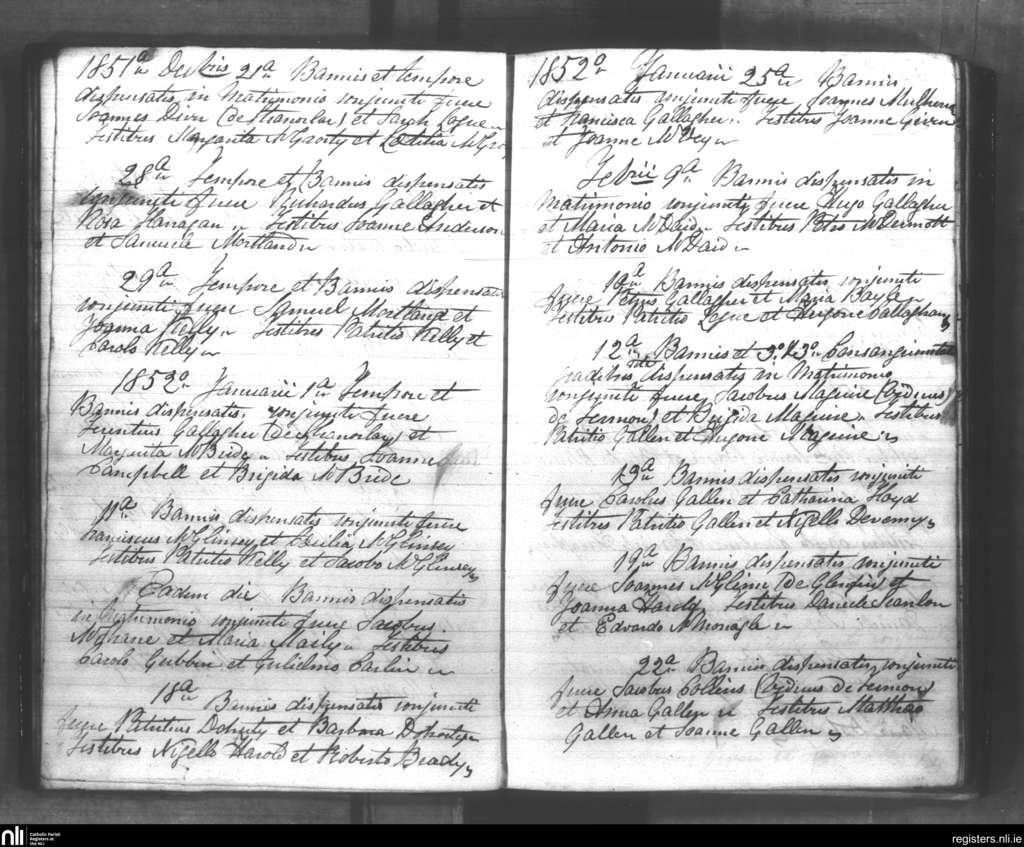 1851 a Decbris 21a Bannis et tempore
dispensatis in Matrimonio conjuncti fuere
Joannes Divir (de Stranorlar) et Sarah Logue
Testibus Margarita McGroity et Laetitia
28a Tempore et Bannis dispensatis
conjuncti fuere Richardus Gallagher et
Rosa Flanagan Testibus Joanne Anderson
et Samuele Mortland
29a Tempore et Bannis dispensatis
conjuncti fuere Samuel Mortland et
Joanna Reilly Testibus Patritio Kelly et
Carolo Kelly
1852o Januarii 1a Tempore et
Bannis dispensatis conjuncti fuere
Terentius Gallagher (de Stranorlar) et
Margarita McBride Testibus Joanne
Campbell et Brigida McBride
11a Bannis dispensatis conjuncti fuere
Franciscus McGlinsey et Cecilia McGlinsey
Testibus Patritio Kelly et Jacobo McGlinsey
Eadem die Bannis dispensatis
in Matrimonio conjuncti fuere Jacobus
et Maria Maily Testibus
Carolo Gubbin et Gulielmo Carlin
18a Bannis dispensatis conjuncti
fuere Patritius Doherty et Barbara
Testibus Nigello Harold et Roberto Brady
1852o Januarii 25a Bannis
dispensatis conjuncti fuere Joannes
et Francisca Gallagher Testibus Joanne
et Joanne McVey
Febrii 9a Bannis dispensatis in
Matrimonio conjuncti fuere Hugo Gallagher
et Maria McDaid Testibus Petro McDermott
et Antonio McDaid
Bannis dispensatis conjuncti
fuere Petrus Gallagher et Maria
Testibus Patritio Logue et Hugone Callaghan
12a Bannis et 3o Consanguinitatis
gradibus dispensatis in Matrimonio
conjuncti fuere Jacobus Maguire
et Brigida Maguire Testibus
Patritio Gallen et Hugone Maguire
19a Bannis dispensatis conjuncti
fuere Carolus Gallen et Catharina
Testibus Patritio Gallen et Nigello Devenny
19a Bannis dispensatis conjuncti
fuere Joannes (de Glenfin) et
Joanna Testibus Daniele Scanlon
et Edvardo McMonagle
22a Bannis dispensatis conjuncti
fuere Jacobus Collins
et Anna Gallen Testibus Matthao
Gallen et Joanne Gallen
nli
Catholic Parish
Registers at
the NLI
registers.nli.ie